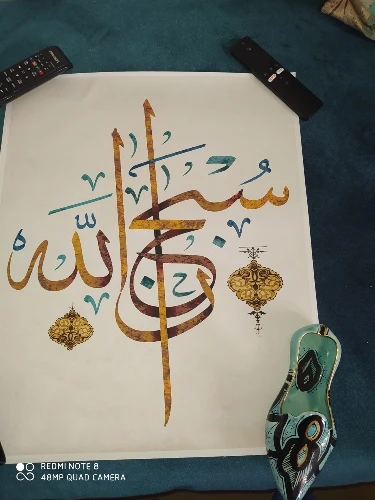 سُبْحَانَ اللَّه
REDMI NOTE 8
48MP QUAD CAMERA